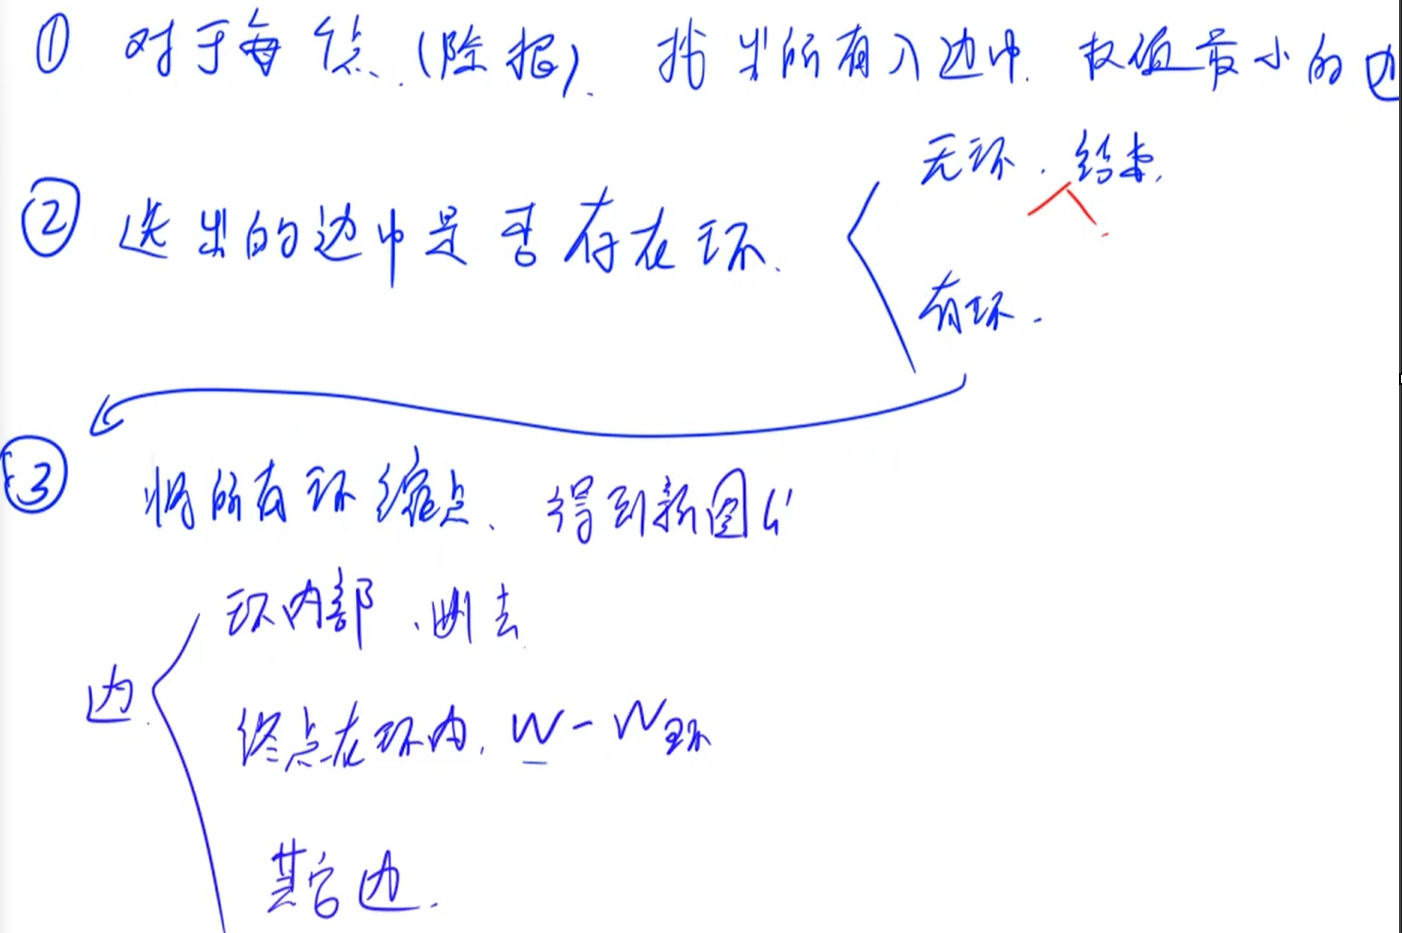 ① 对于每个点(除根). 找出所有入边中. 权值最小的边
② 选出的边中是否存在环.
无环. 结束.
有环.
③ 将所有环缩点、得到新图G'
边.
环内部、删去
终点在环内, W - W环
其它边.